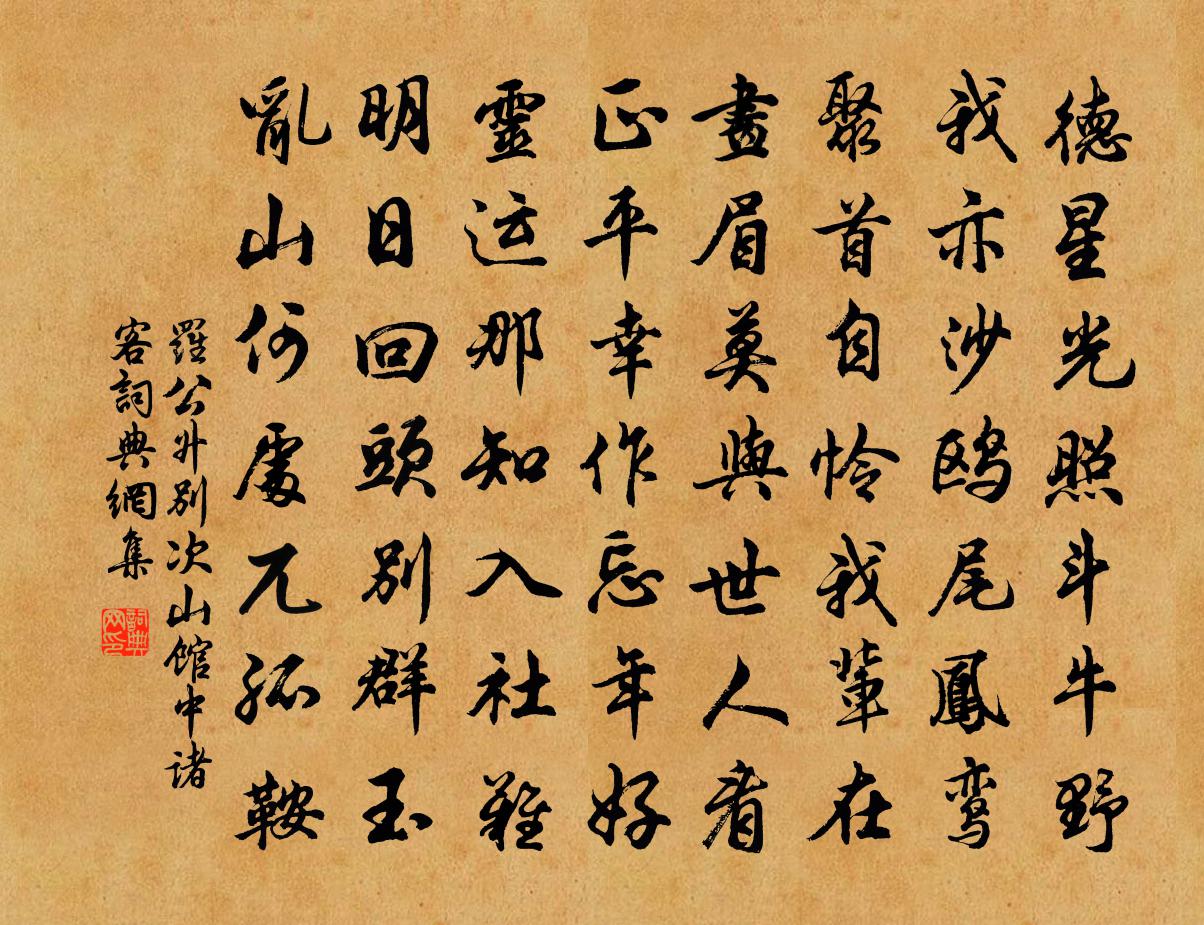 德星光照斗牛野
我亦沙鸥尾鳳鸾
聚首自怜我輩在
畫眉莫與世人看
正平幸作忘年好
靈运那知入社難
明日回頭別群玉
亂山何處兀孤鞍
羅公升別次山館中諸
客詞典網集
詞典网印